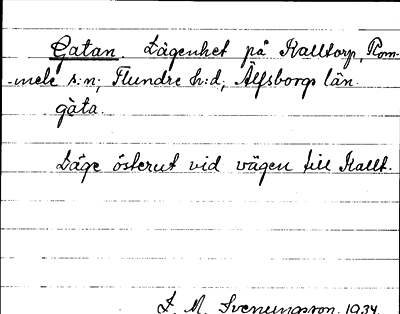 Gatan. Lägenhet på Kalltorp, Rom-
-mele s:n; Flundre h:d; Älfsborgs län.
gàta.
Läge österut vid vägen till Kallt.
L. M. Svenungsson. 1934.